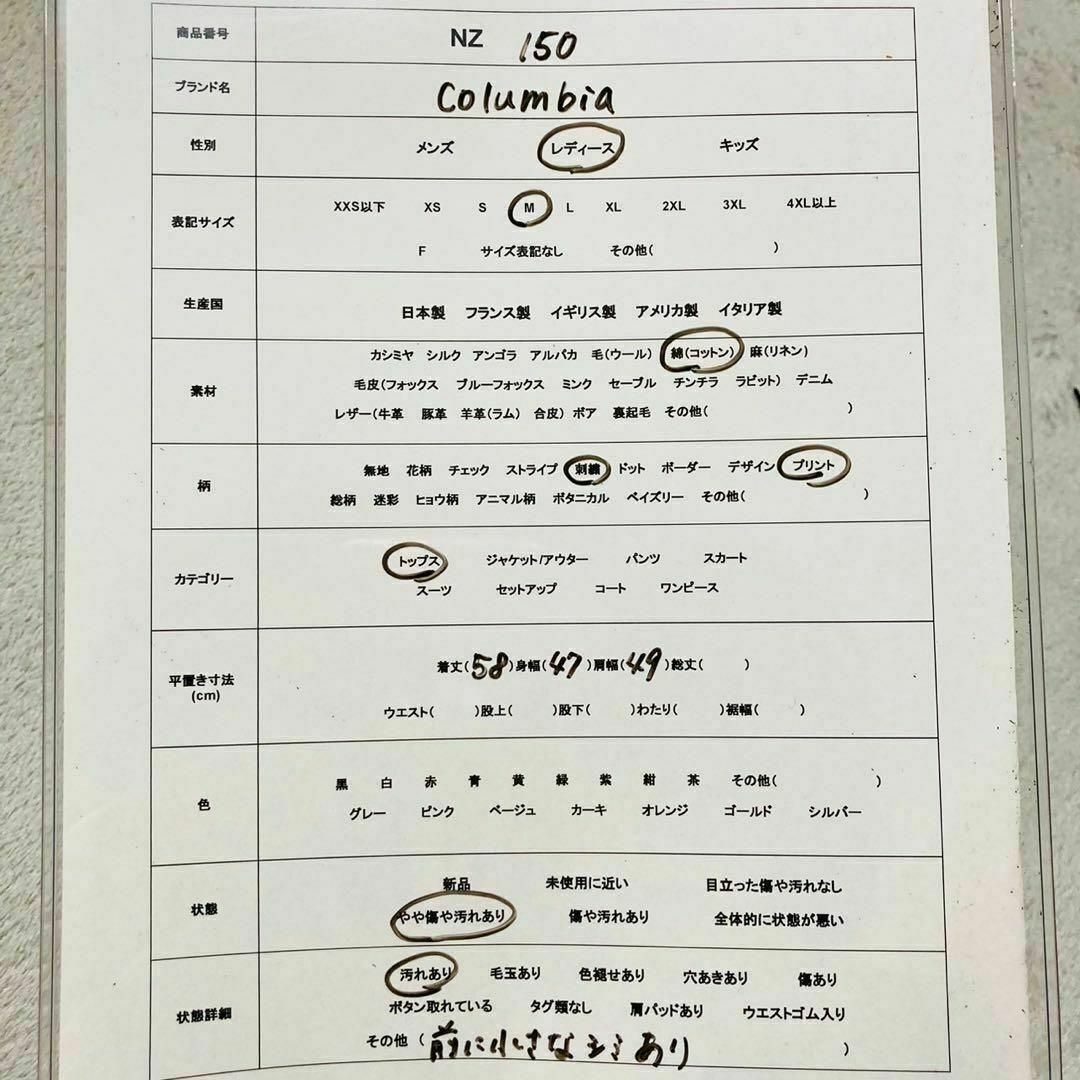 商品番号 NZ 150
ブランド名 Columbia
性別 メンズ レディース キッズ
表記サイズ XXS以下 XS S M L XL 2XL 3XL 4XL以上
F サイズ表記なし その他( )
生産国 日本製 フランス製 イギリス製 アメリカ製 イタリア製
素材 カシミヤ シルク アンゴラ アルパカ 毛(ウール) 綿(コットン) 麻(リネン)
毛皮(フォックス ブルーフォックス ミンク セーブル チンチラ ラビット) デニム
レザー(牛革 豚革 羊革(ラム) 合皮) ボア 裏起毛 その他( )
柄 無地 花柄 チェック ストライプ 刺繍 ドット ボーダー デザイン プリント
総柄 迷彩 ヒョウ柄 アニマル柄 ボタニカル ペイズリー その他( )
カテゴリー トップス ジャケット/アウター パンツ スカート
スーツ セットアップ コート ワンピース
平置き寸法 (cm) 着丈(58)身幅(47)肩幅(49)総丈( )
ウエスト( )股上( )股下( )わたり( )裾幅( )
色 黒 白 赤 青 黄 緑 紫 紺 茶 その他( )
グレー ピンク ベージュ カーキ オレンジ ゴールド シルバー
状態 新品 未使用に近い 目立った傷や汚れなし
やや傷や汚れあり 傷や汚れあり 全体的に状態が悪い
状態詳細 汚れあり 毛玉あり 色褪せあり 穴あきあり 傷あり
ボタン取れている タグ類なし 肩パッドあり ウエストゴム入り
その他 (前に小さなシミあり )